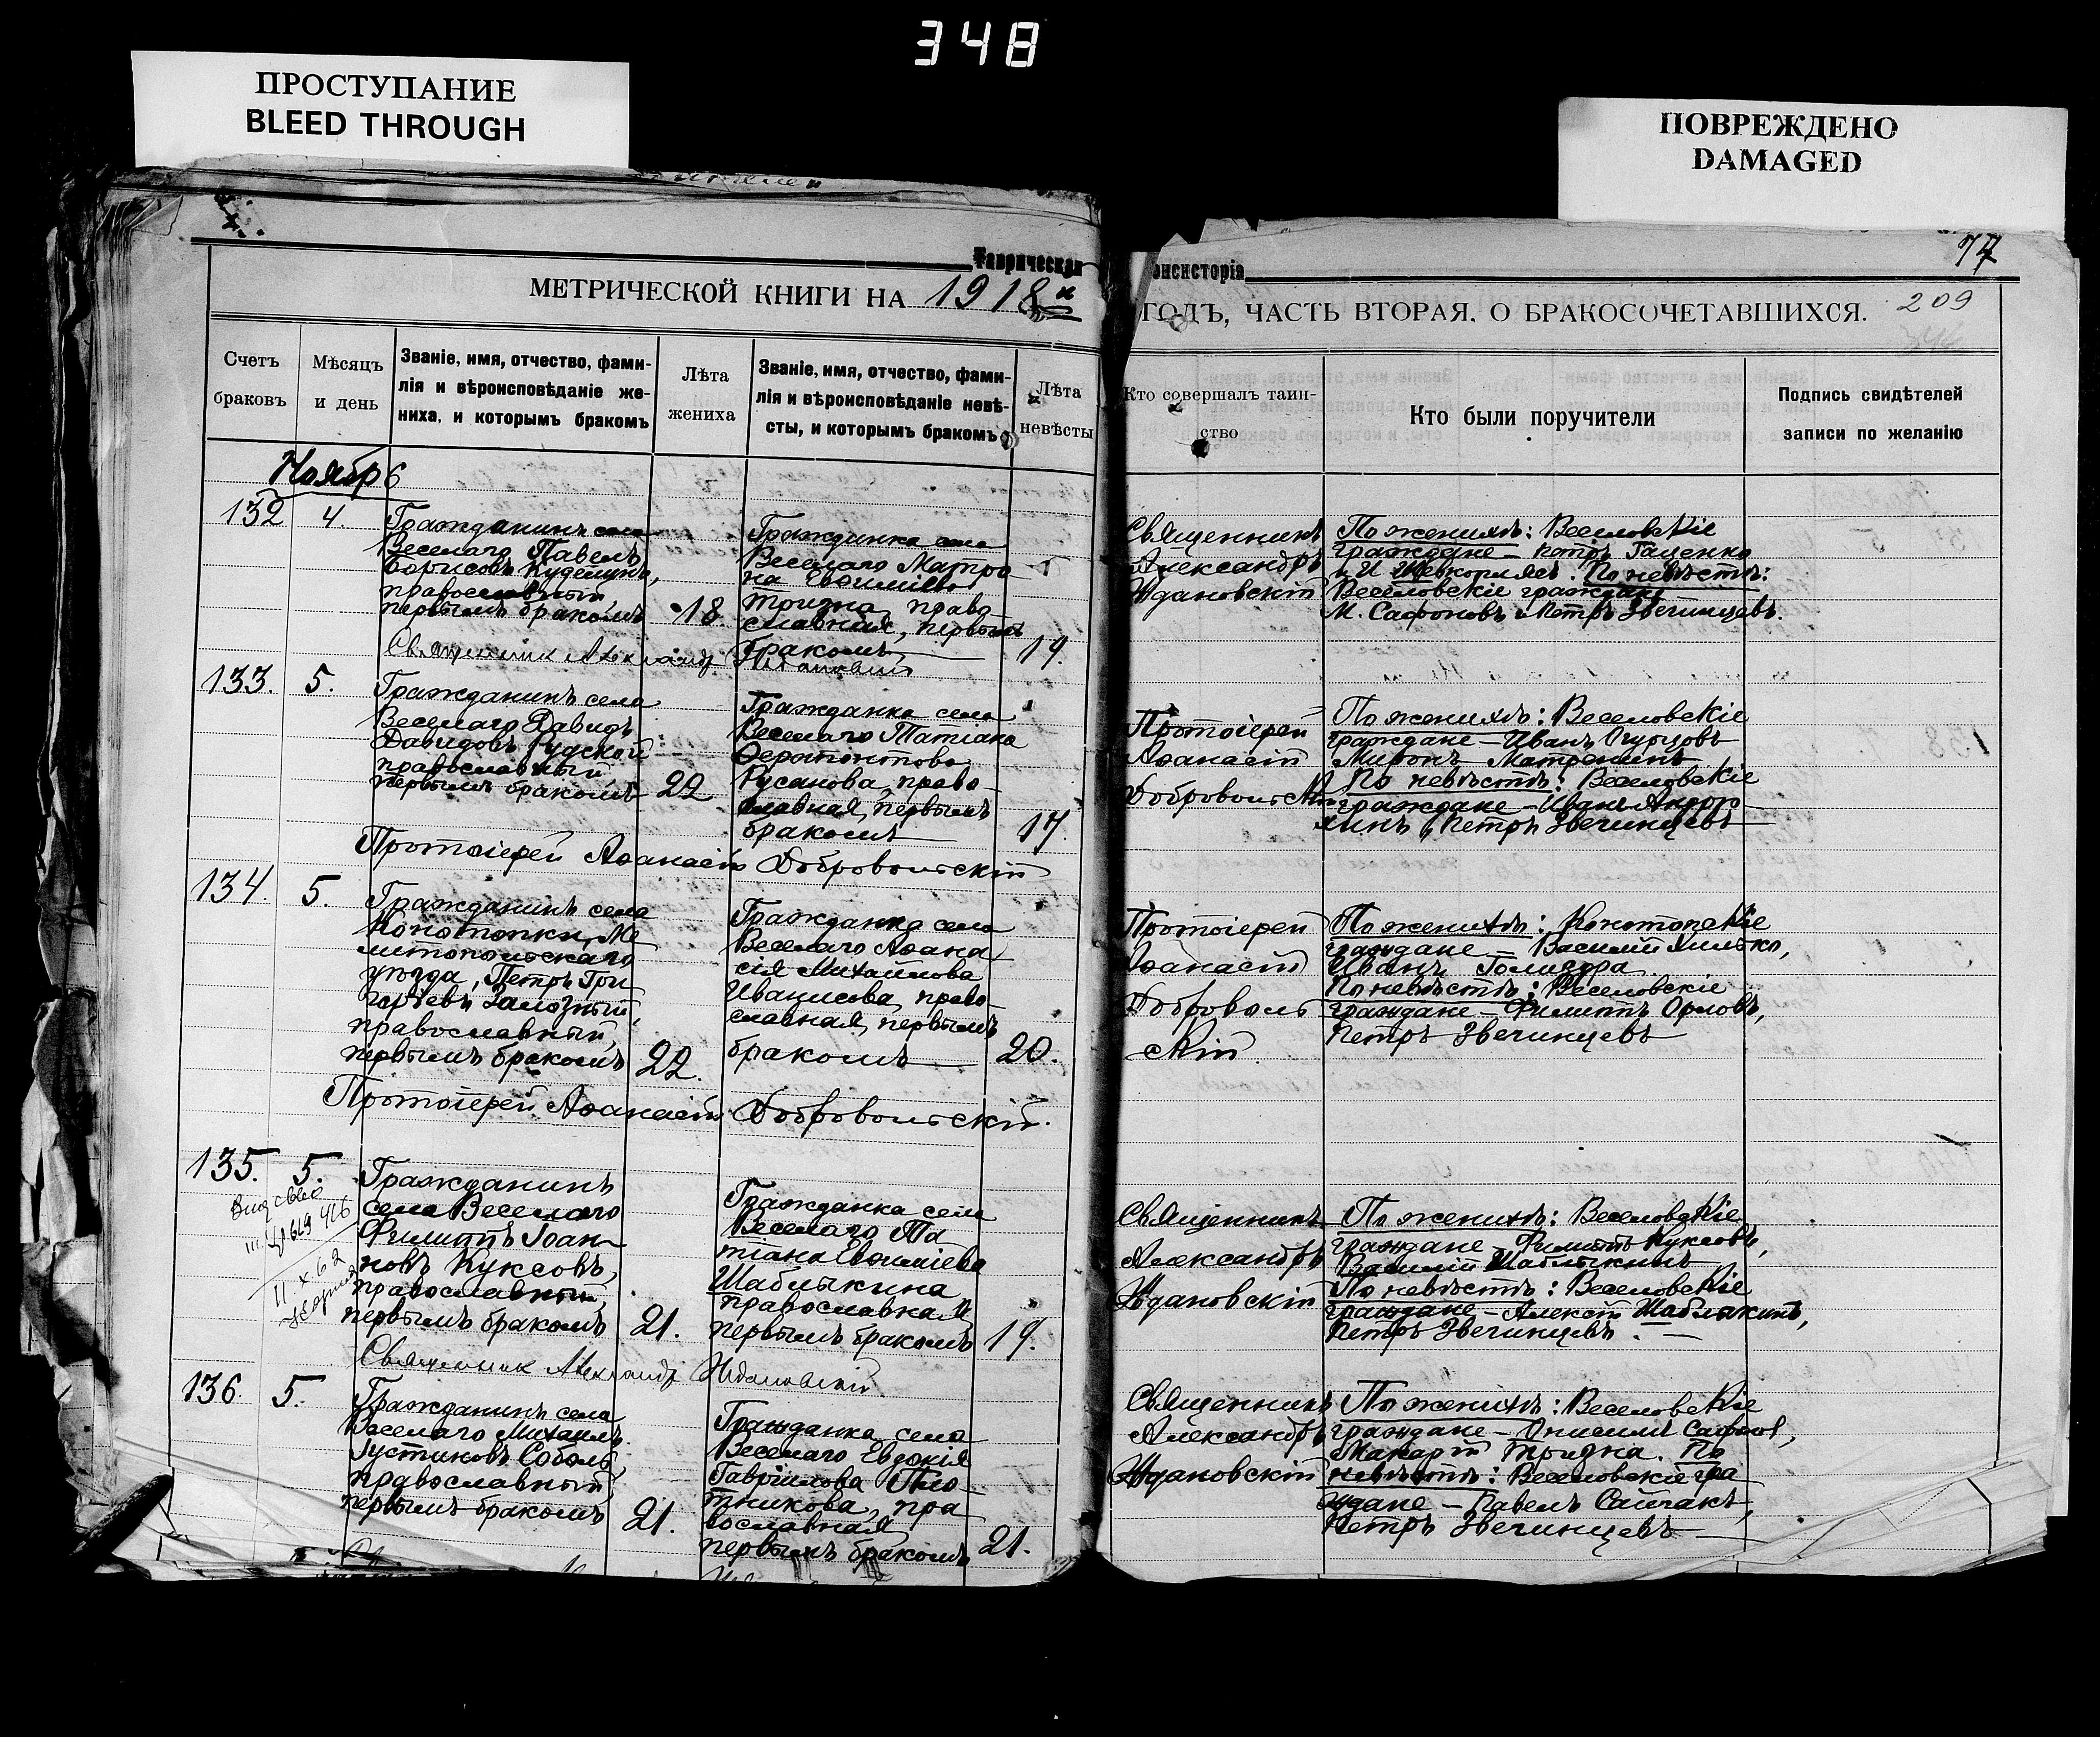 348
ПРОСТУПАНИЕ
BLEED THROUGH
ПОВРЕЖДЕНО
DAMAGED
Таврическая
онсисторія
77
МЕТРИЧЕСКОЙ КНИГИ НА 1918й
ГОДЪ, ЧАСТЬ ВТОРАЯ, О БРАКОСОЧЕТАВШИХСЯ.
209
Счетъ
браковъ
Мѣсяцъ
и день
Званіе, имя, отчество, фами-
лія и вѣроисповѣданіе же-
ниха, и которымъ бракомъ
Лѣта
жениха
Званіе, имя, отчество, фами-
лія и вѣроисповѣданіе невѣ-
сты, и которымъ бракомъ
Лѣта
невѣсты
Кто совершалъ таин-
ство
Кто были поручители
Подпись свидѣтелей
записи по желанію
Ноябрь
132
4.
Гражданинъ села
Веселаго Павелъ
Борисовъ
православный
первымъ бракомъ
18.
Гражданка села
Веселаго Матро
на Евѳиміева
Тризна, право
славная, первымъ
бракомъ
19.
Священникъ
Александръ
Ждановскій
По женихѣ: Веселовскіе
граждане – Петръ Гаценко
и И
По невѣстѣ:
Веселовскіе граждане
М. Сафоновъ и Петръ Звегинцевъ.
Священник Александр Ждановский
133.
5.
Гражданинъ села
Веселаго Давидъ
Давидовъ Рудской
православный,
первымъ бракомъ
22
Гражданка села
Веселаго Татіана
Ферапонтова
Русанова, право-
славная, первымъ
бракомъ
17.
Протоіерей
Аѳанасій
Добровольскій
По женихѣ: Веселовскіе
граждане – Иванъ Огурцовъ
Миронъ
По невѣстѣ: Веселовскіе
граждане – Иванъ
Петръ Звегинцевъ
Протоіерей Аѳанасій Добровольскій
134.
5.
Гражданинъ села
Конотопки, Ме
литопольскаго
уѣзда, Петръ Гри
горьевъ Заможный,
православный,
первымъ бракомъ
22.
Гражданка села
Веселаго Аѳана
сія Михайлова
Иванисова, право-
славная, первымъ
бракомъ
20.
Протоіерей
Аѳанасій
Доброволь
скій
По женихѣ: Конотопскіе
граждане – Василій
Иванъ
По невѣстѣ: Веселовскіе
граждане – Филиппъ Орловъ,
Петръ Звегинцевъ
Протоіерей Аѳанасій Добровольскій.
135.
5.
11.X.62
Гражданинъ
села Веселаго
Филиппъ Іоан-
новъ Куксовъ,
православный,
первымъ бракомъ
21.
Гражданка села
Веселаго Та
тіана Евѳиміева
Шаблыкина
православная
первымъ бракомъ
19.
Священникъ
Александръ
Ждановскій
По женихѣ: Веселовскіе
граждане – Филиппъ Куксовъ,
Василій Шаблыкинъ
По невѣстѣ: Веселовскіе
граждане – Алексѣй Шаблыкинъ,
Петръ Звегинцевъ.
Священник Александр Ждановский
136.
5.
Гражданинъ села
Веселаго Михаилъ
Іустиновъ Соболь,
православный
первымъ бракомъ
21.
Гражданка села
Веселаго Евдокія
Гавріилова Пло-
тникова, пра
вославная
первымъ бракомъ
21.
Священникъ
Александръ
Ждановскій
По женихѣ: Веселовскіе
граждане – Онисимъ Сафонов,
Макарій Тризна. По
невѣстѣ: Веселовскіе гра
ждане – Павелъ Сайчакъ,
Петръ Звегинцевъ